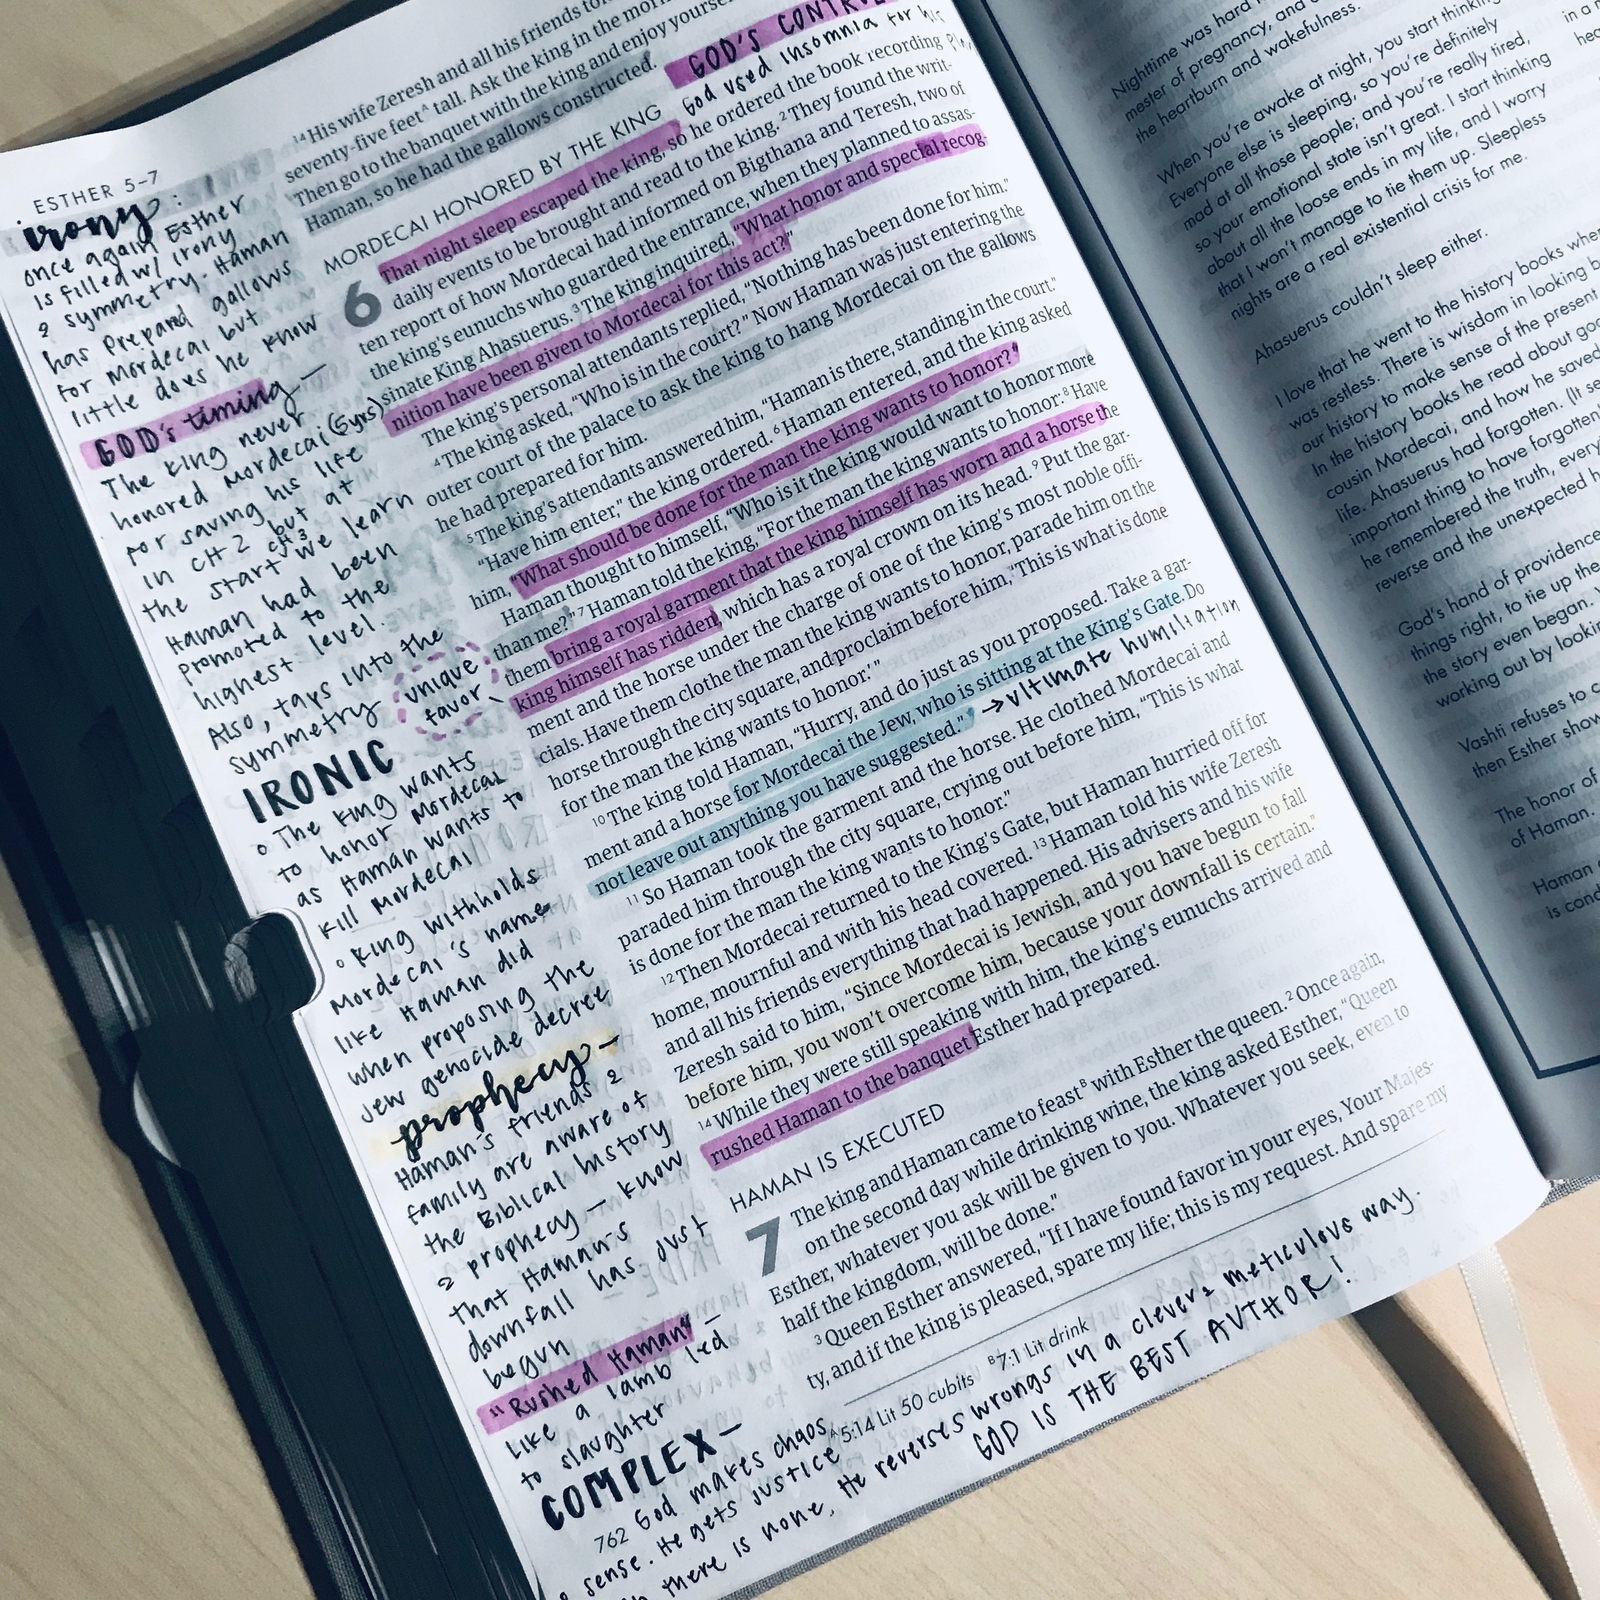 ESTHER 5–7
irony:
once again Esther
is filled w/ irony
& symmetry. Haman
has prepared gallows
for Mordecai but
little does he know
GOD's timing —
The king never
honored Mordecai (5yrs)
for saving his life
in CH 2 but at
CH 3
the start we learn
Haman had been
promoted to the
highest level.
Also, tays into the
symmetry unique
favor
IRONIC
• The king wants
to honor Mordecai
as Haman wants to
kill Mordecai
• King withholds
Mordecai's name
like Haman did
when proposing the
Jew genocide decree
prophecy —
Haman's friends &
family are aware of
the Biblical history
& prophecy — know
that Haman's
downfall has just
begun
"Rushed Haman" —
Like a lamb led
to slaughter
COMPLEX —
God makes chaos
sense. He gets justice
there is none, He reverses wrongs in a clever & meticulous way.
GOD IS THE BEST AUTHOR!
762
14 His wife Zeresh and all his friends told
seventy-five feetᴬ tall. Ask the king in the
Then go to the banquet with the king and enjoy
Haman, so he had the gallows constructed.
GOD'S CONTROL
God used insomnia for his
MORDECAI HONORED BY THE KING
6 That night sleep escaped the king, so he ordered the book recording
daily events to be brought and read to the king. 2 They found the writ-
ten report of how Mordecai had informed on Bigthana and Teresh, two of
the king's eunuchs who guarded the entrance, when they planned to assas-
sinate King Ahasuerus. 3 The king inquired, "What honor and special recog-
nition have been given to Mordecai for this act?"
The king's personal attendants replied, "Nothing has been done for him."
4 The king asked, "Who is in the court?" Now Haman was just entering the
outer court of the palace to ask the king to hang Mordecai on the gallows
he had prepared for him.
5 The king's attendants answered him, "Haman is there, standing in the court."
"Have him enter," the king ordered. 6 Haman entered, and the king asked
him, "What should be done for the man the king wants to honor?"
Haman thought to himself, "Who is it the king would want to honor more
than me?" 7 Haman told the king, "For the man the king wants to honor: 8 Have
them bring a royal garment that the king himself has worn and a horse the
king himself has ridden, which has a royal crown on its head. 9 Put the gar-
ment and the horse under the charge of one of the king's most noble offi-
cials. Have them clothe the man the king wants to honor, parade him on the
horse through the city square, and proclaim before him, 'This is what is done
for the man the king wants to honor.'"
10 The king told Haman, "Hurry, and do just as you proposed. Take a gar-
ment and a horse for Mordecai the Jew, who is sitting at the King's Gate. Do
not leave out anything you have suggested." → ultimate humiliation
11 So Haman took the garment and the horse. He clothed Mordecai and
paraded him through the city square, crying out before him, "This is what
is done for the man the king wants to honor."
12 Then Mordecai returned to the King's Gate, but Haman hurried off for
home, mournful and with his head covered. 13 Haman told his wife Zeresh
and all his friends everything that had happened. His advisers and his wife
Zeresh said to him, "Since Mordecai is Jewish, and you have begun to fall
before him, you won't overcome him, because your downfall is certain."
14 While they were still speaking with him, the king's eunuchs arrived and
rushed Haman to the banquet Esther had prepared.
HAMAN IS EXECUTED
7 The king and Haman came to feastᴮ with Esther the queen. 2 Once again,
on the second day while drinking wine, the king asked Esther, "Queen
Esther, whatever you ask will be given to you. Whatever you seek, even to
half the kingdom, will be done."
3 Queen Esther answered, "If I have found favor in your eyes, Your Majes-
ty, and if the king is pleased, spare my life; this is my request. And spare my
ᴬ 5:14 Lit 50 cubits ᴮ 7:1 Lit drink
Nighttime was hard
mester of pregnancy, and
the heartburn and wakefulness.
When you're awake at night, you start thinking
Everyone else is sleeping, so you're definitely
mad at all those people; and you're really tired,
so your emotional state isn't great. I start thinking
about all the loose ends in my life, and I worry
that I won't manage to tie them up. Sleepless
nights are a real existential crisis for me.
Ahasuerus couldn't sleep either.
I love that he went to the history books when
was restless. There is wisdom in looking
our history to make sense of the present
In the history books he read about
cousin Mordecai, and how he saved
life. Ahasuerus had forgotten. (It
important thing to have forgotten
he remembered the truth, every
reverse and the unexpected
God's hand of providence
things right, to tie up the
the story even began.
working out by
Vashti refuses to
then Esther
The honor of
of Haman.
Haman
is